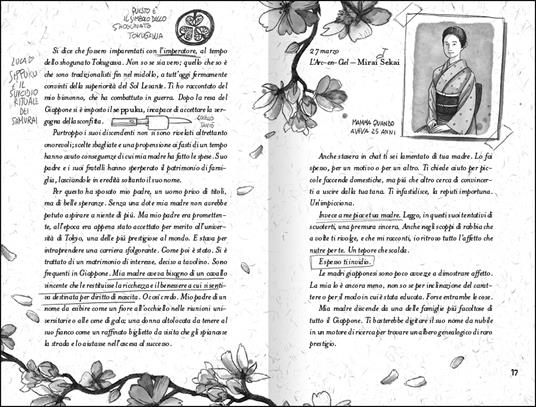 QUESTO È
IL SIMBOLO DELLO
SHOGUNATO
TOKUGAWA
Si dice che fossero imparentati con l'imperatore, al tempo
dello shogunato Tokugawa. Non so se sia vero; quello che so è
che sono tradizionalisti fin nel midollo, a tutt'oggi fermamente
convinti della superiorità del Sol Levante. Ti ho raccontato del
mio bisnonno, che ha combattuto in guerra. Dopo la resa del
Giappone si è imposto il seppuku, incapace di accettare la ver-
gogna della sconfitta.
SEPPUKU
È IL
SUICIDIO
RITUALE
DEI
SAMURAI
Purtroppo i suoi discendenti non si sono rivelati altrettanto
onorevoli; scelte sbagliate e una propensione ai fasti di un tempo
hanno avuto conseguenze di cui mia madre ha fatto le spese. Suo
padre e i suoi fratelli hanno sperperato il patrimonio di fami-
glia, lasciandole in eredità soltanto il suo nome.
Per questo ha sposato mio padre, un uomo privo di titoli,
ma di belle speranze. Senza una dote mia madre non avrebbe
potuto aspirare a niente di più. Ma mio padre era promettен-
te, all'epoca era appena stato accettato per merito all'universi-
tà di Tokyo, una delle più prestigiose al mondo. E stava per
intraprendere una carriera sfolgorante. Come poi è stato. Si è
trattato di un matrimonio di interesse, deciso a tavolino. Sono
frequenti in Giappone. Mia madre aveva bisogno di un cavallo
vincente che le restituisse la ricchezza e il benessere a cui si senti-
va destinata per diritto di nascita. O così credo. Mio padre di un
nome da esibire come un fiore all'occhiello nelle riunioni uni-
versitarie o alle cene di gala; una donna altolocata da tenere al
suo fianco come un raffinato biglietto da visita che gli spianasse
la strada e lo aiutasse nell'ascesa al successo.
27 marzo
L'Arc-en-Ciel – Mirai Sekai
MAMMA QUANDO
AVEVA 25 ANNI
Anche stasera in chat ti sei lamentato di tua madre. Lo fai
spesso, per un motivo o per un altro. Ti chiede aiuto per pic-
cole faccende domestiche, ma più che altro cerca di convincer-
ti a uscire dalla tua tana. Ti infastidisce, la reputi importuna.
Un'impicciona.
Invece a me piace tua madre. Leggo, in questi suoi tentativi di
scuoterti, una premura sincera. Anche negli scoppi di rabbia che
a volte ti rivolge, e che mi racconti, io ritrovo tutto l'affetto che
nutre per te. Un tepore che scalda.
E spesso ti invidio.
Le madri giapponesi sono poco avvezze a dimostrare affetto.
La mia lo è ancora meno, non so se per inclinazione del carat-
tere o per il modo in cui è stata educata. Forse entrambe le cose.
Mia madre discende da una delle famiglie più facoltose di
tutto il Giappone. Ti basterebbe digitare il suo nome da nubile
in un motore di ricerca per trovare un albero genealogico di raro
prestigio.
17